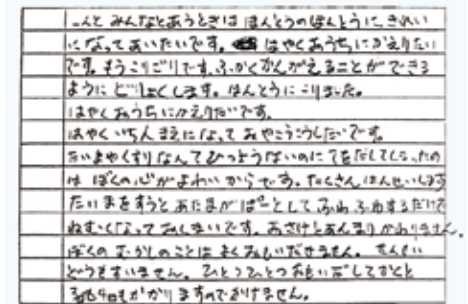 んと みんなとあうときは ほんとうのほんとうに、きれい
になってあいたいです。 はやくおうちにかえりたい
です。もうこりごりです。ふかくかんがえることができる
ように どりょくします。ほんとうに こりました。
はやくおうちにかえりたいです。
はやくいちんまえになって おやこうこうしたいです。
たいまやくすりなんてひつようないのにてをだしてしまったの
は ぼくの心がよわいからです。たくさんはんせいします
たいまをすうとあたまがぱーとして ふわふわするだけで
ねむくなっておしまいです。おさけとあんまりかわりません。
ぼくの むかしのことは よくおもいだせません。
どうもすいません。ひとつひとつおもいだしてかくと
365日もかかりますのでかけません。